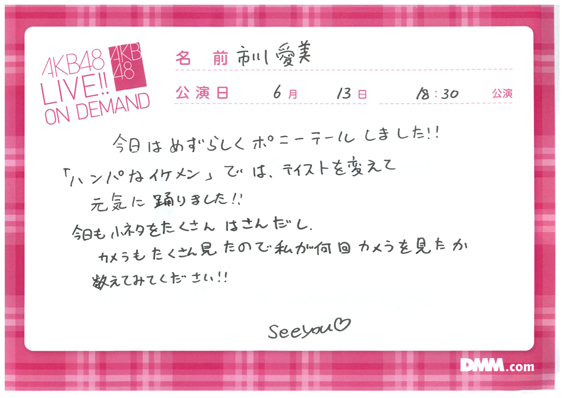 AKB48
LIVE!!
ON DEMAND
AKB
48
名前 市川愛美
公演日 6月 13日 18:30 公演
今日はめずらしくポニーテールしました!!
「ハンパなイケメン」では、テイストを変えて
元気に踊りました!!
今日も小ネタをたくさんはさんだし、
カメラもたくさん見たので私が何回カメラを見たか
数えてみてください!!
see you♡
DMM.com